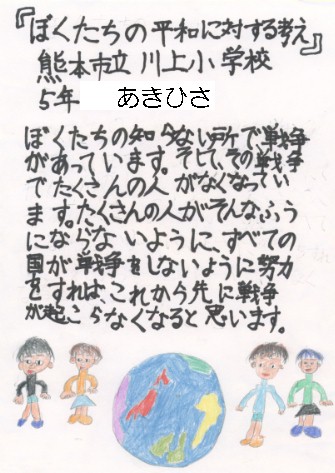 『ぼくたちの平和に対する考え』
熊本市立川上小学校
5年 あきひさ
ぼくたちの知らない所で戦争
があっています。そして、その戦争
でたくさんの人がなくなってい
ます。たくさんの人がそんなふう
にならないように、すべての
国が戦争をしないように努力
をすれば、これから先に戦争
が起こらなくなると思います。